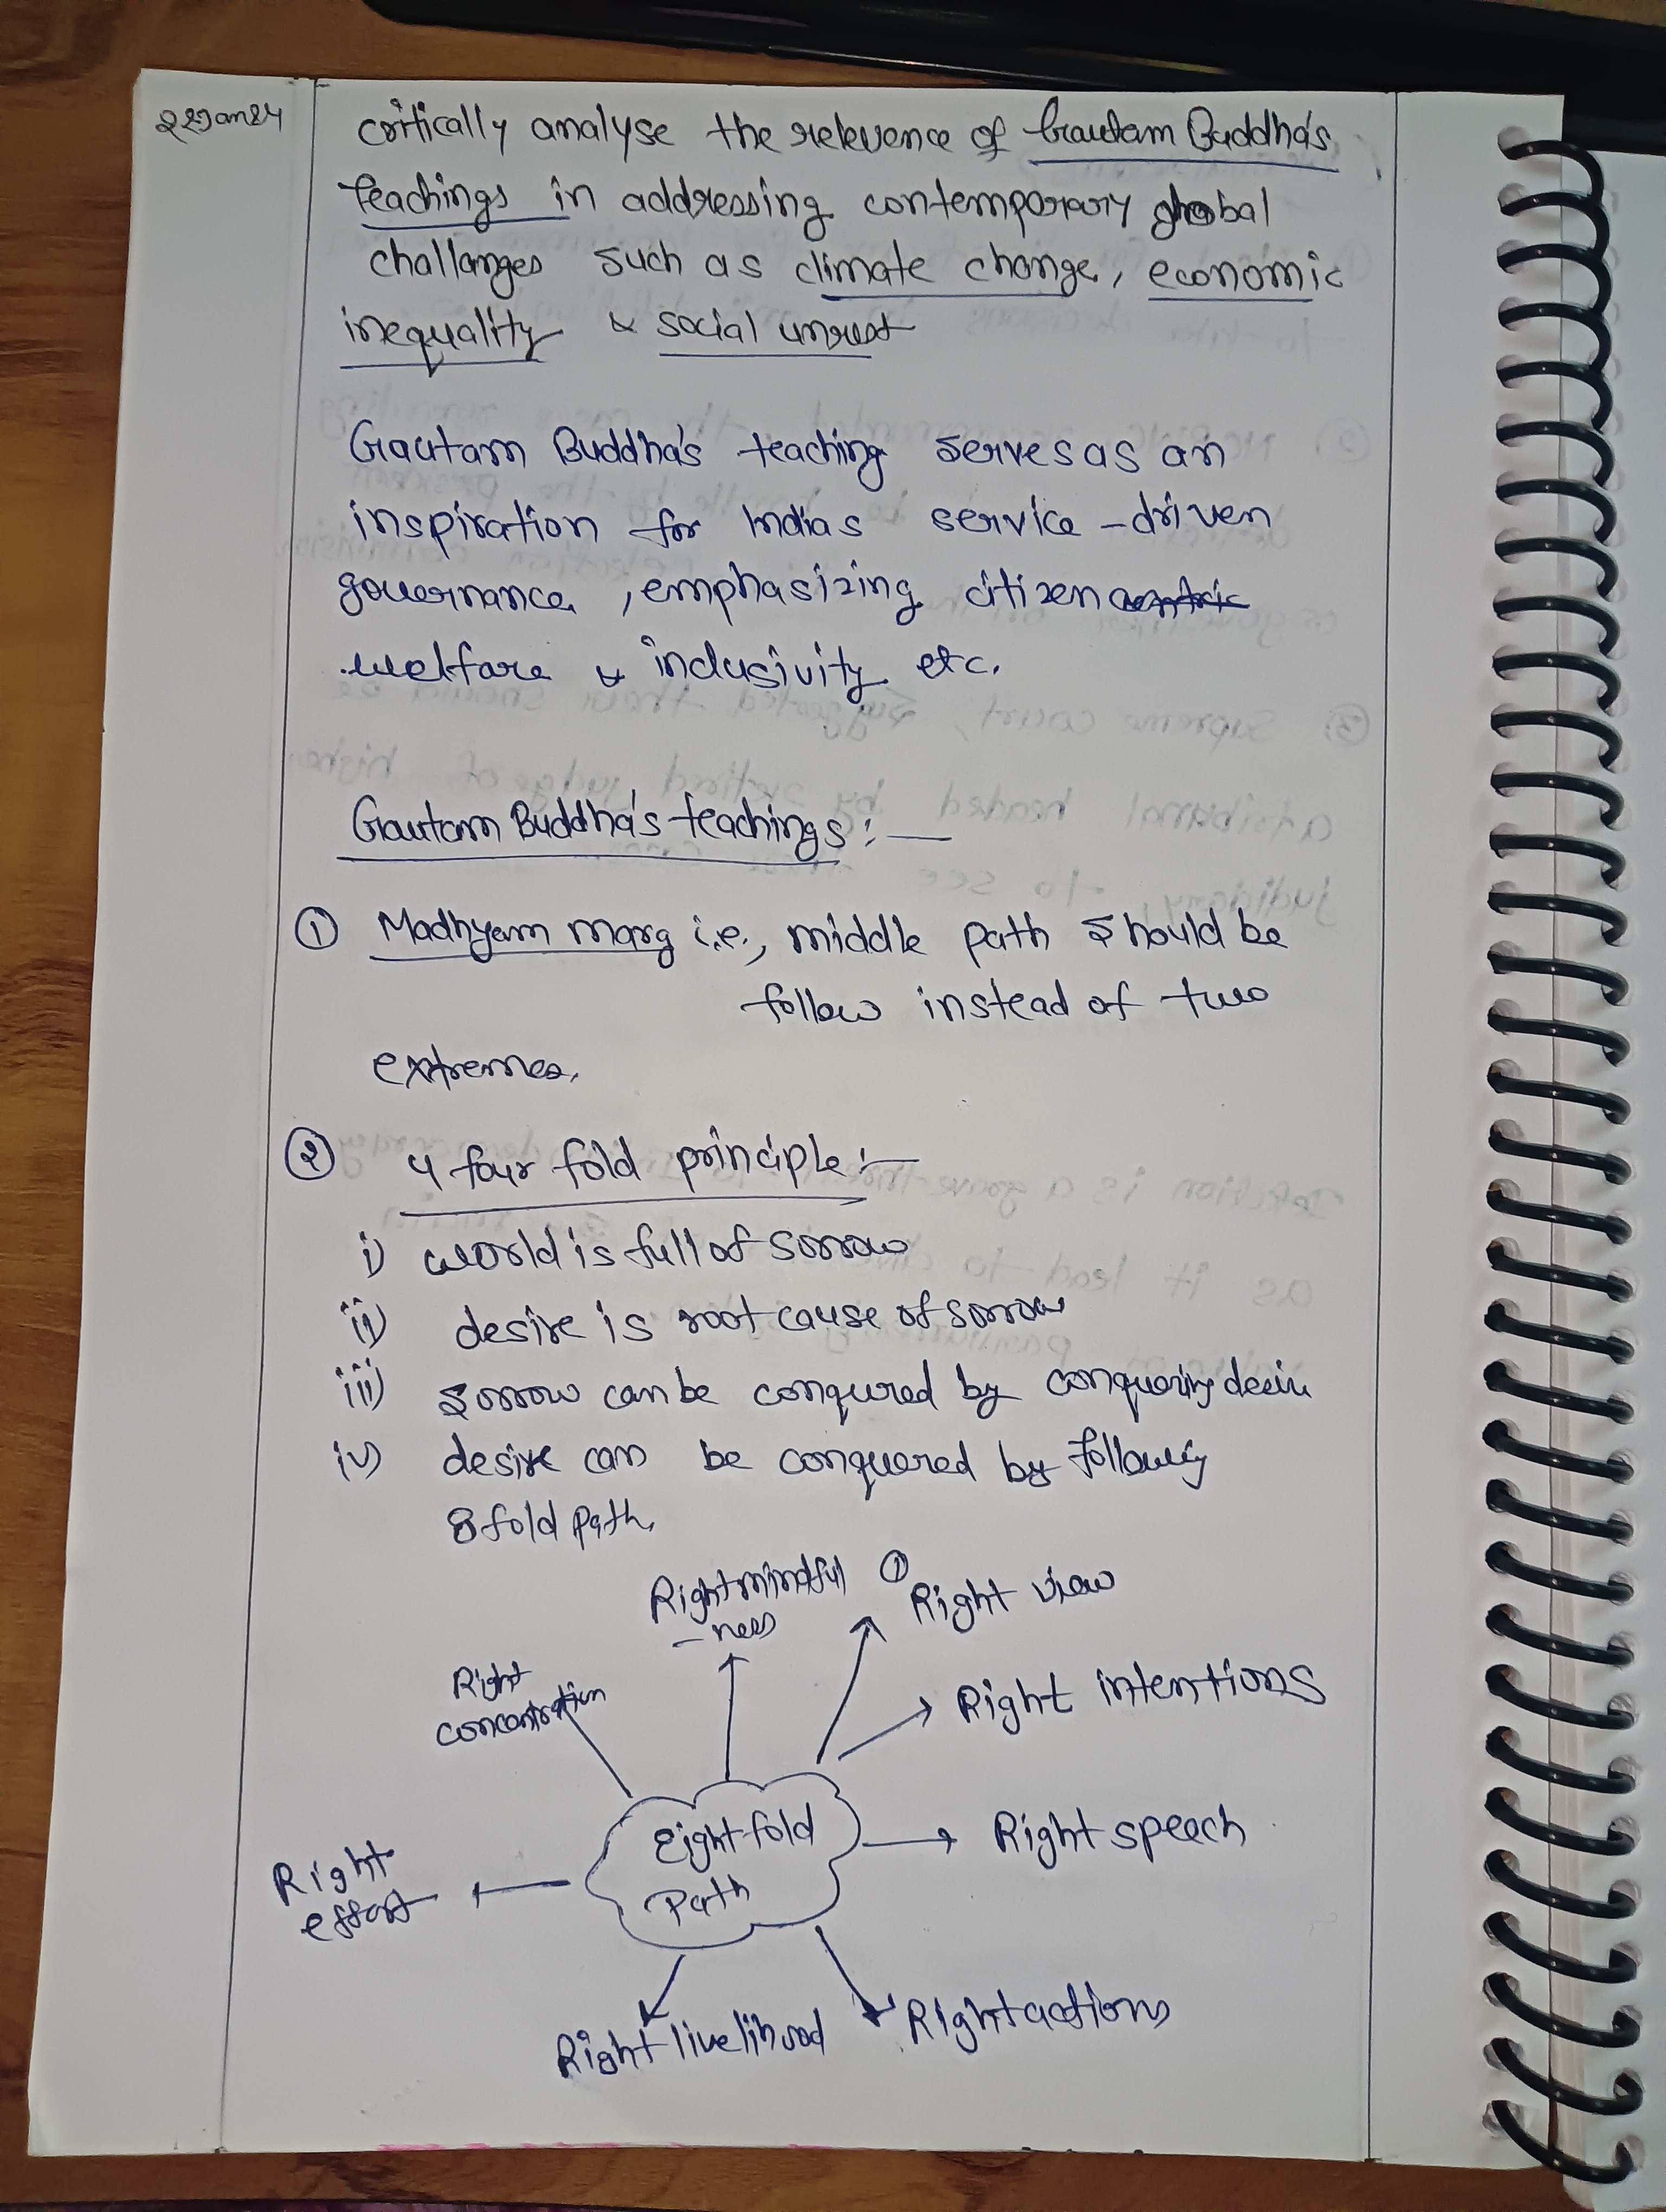 22Jan24
critically analyse the relevence of Gautam Buddha's
teachings in addressing contemporary global
challanges such as climate change, economic
inequality & social unrest
Gautam Buddha's teaching serves as an
inspiration for Indias service-driven
governance, emphasizing citizen centric
welfare & inclusivity etc.
Gautam Buddha's teachings:—
① Madhyam marg i.e., middle path should be
follow instead of two
extremes.
② 4 four fold principle:—
i) world is full of sorrow
ii) desire is root cause of sorrow
iii) sorrow can be conqured by conquering desire
iv) desire can be conquered by following
8 fold path.
Right mindful
-ness
① Right view
Right
concentration
Right intentions
Eight-fold
Path
Right speech
Right
effort
Right livelihood
Right actions